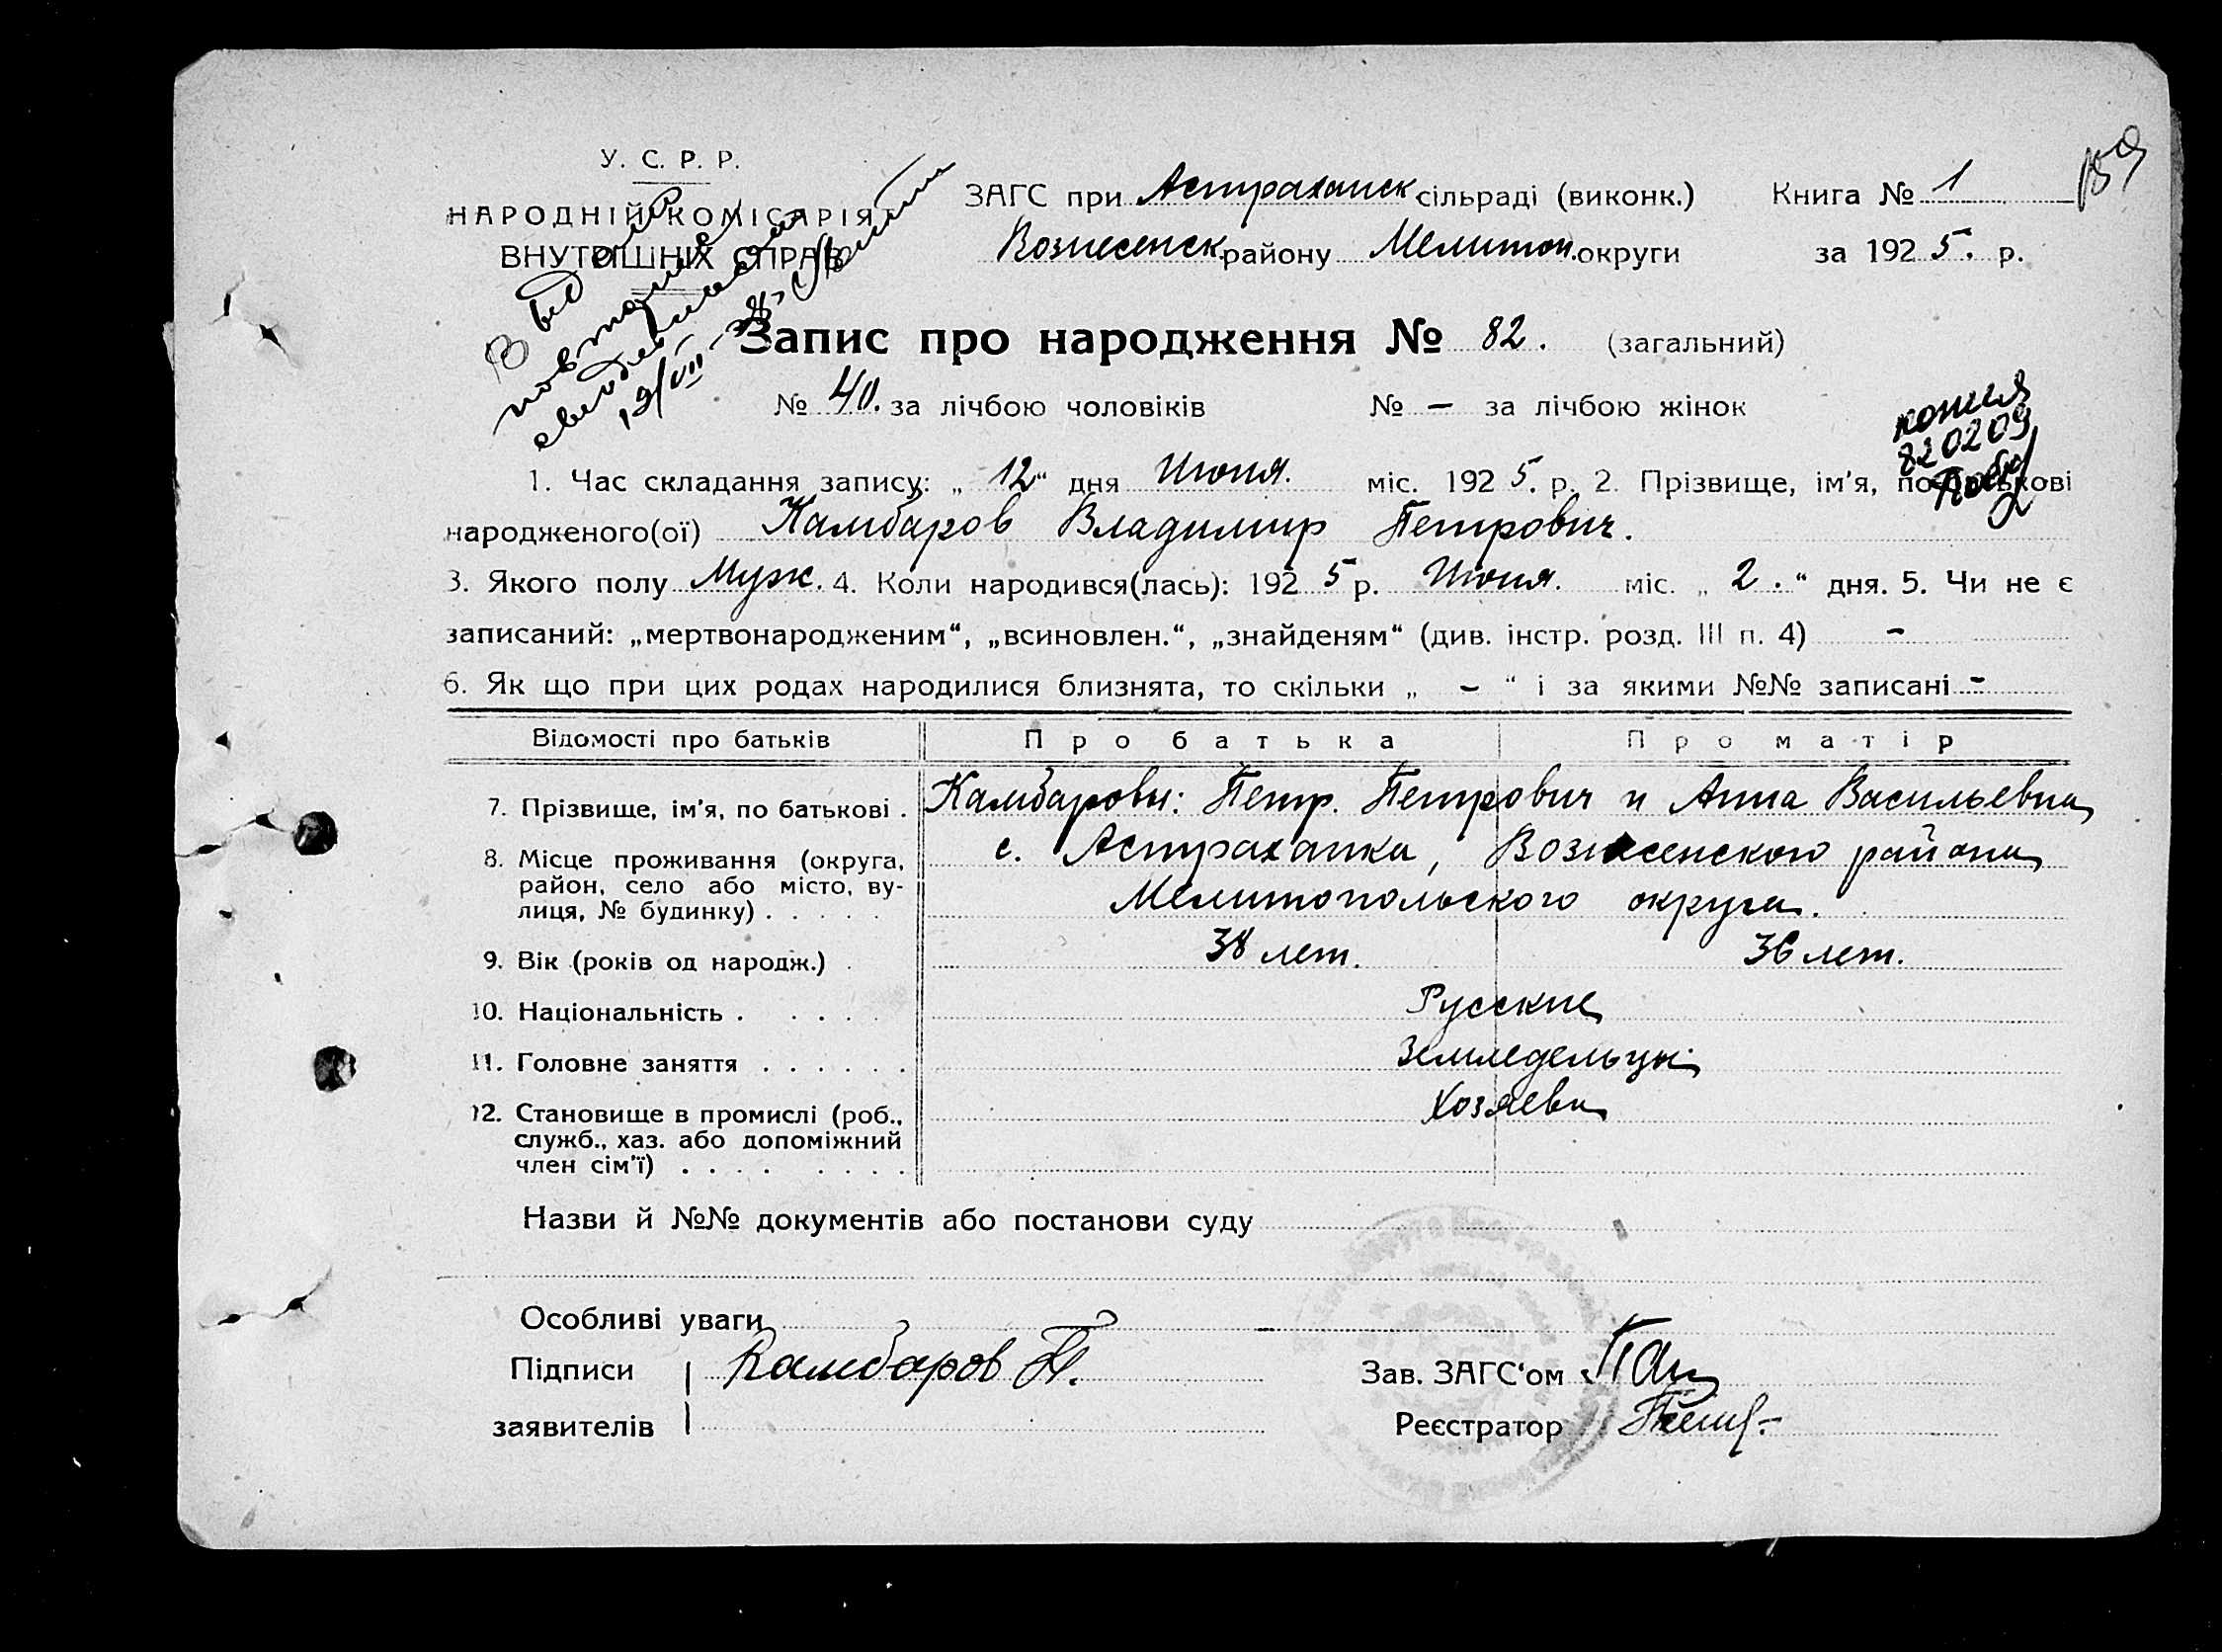 У. С. Р. Р.
НАРОДНІЙ КОМІСАРІЯТ
ВНУТРІШНІХ СПРАВ
ЗАГС при Астраханск сільраді (виконк.) Книга № 1
Вознесенск. району Мелитоп. округи за 1925. р.
Видано
повторне
свидетельство
19/VII
Запис про народження № 82. (загальний)
№ 40. за лічбою чоловіків № — за лічбою жінок
копия
820209
1. Час складання запису: „ 12 “ дня Июня. міс. 1925. р. 2. Прізвище, ім'я, по батькові
народженого(ої) Камбаров Владимир Петрович.
3. Якого полу Муж. 4. Коли народився(лась): 1925 р. Июня. міс. „ 2. “ дня. 5. Чи не є
записаний: „мертвонародженим“, „всиновлен.“, „знайденям“ (див. інстр. розд. III п. 4) -
6. Як що при цих родах народилися близнята, то скільки „ - “ і за якими №№ записані -
Відомості про батьків Про батька Про матір
7. Прізвище, ім'я, по батькові . Камбаровы: Петр. Петрович и Анна Васильевна
8. Місце проживання (округа, с. Астраханка, Вознесенского района
район, село або місто, ву-
лиця, № будинку) . . . . . Мелитопольского округа.
9. Вік (років од народж.) . 38 лет. 36 лет.
10. Національність . . . . . Русские
11. Головне заняття . . . . . . Земледельцы
12. Становище в промислі (роб., Хозяева
служб., хаз. або допоміжний
член сім'ї) . . . . . . . .
Назви й №№ документів або постанови суду
Особливі уваги -
Підписи Камбаров П. Зав. ЗАГС'ом
заявителів Реєстратор